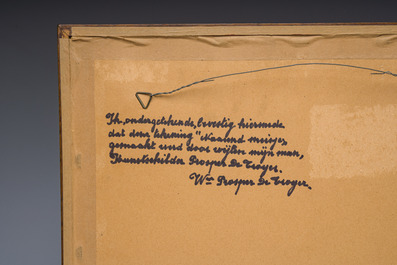 Ik, ondergetekende, bevestig hiermede
dat deze tekening "Naaiend meisje,
gemaakt werd door wijlen mijn man,
Kunstschilder Prosper De Troyer.
We Prosper De Troyer.